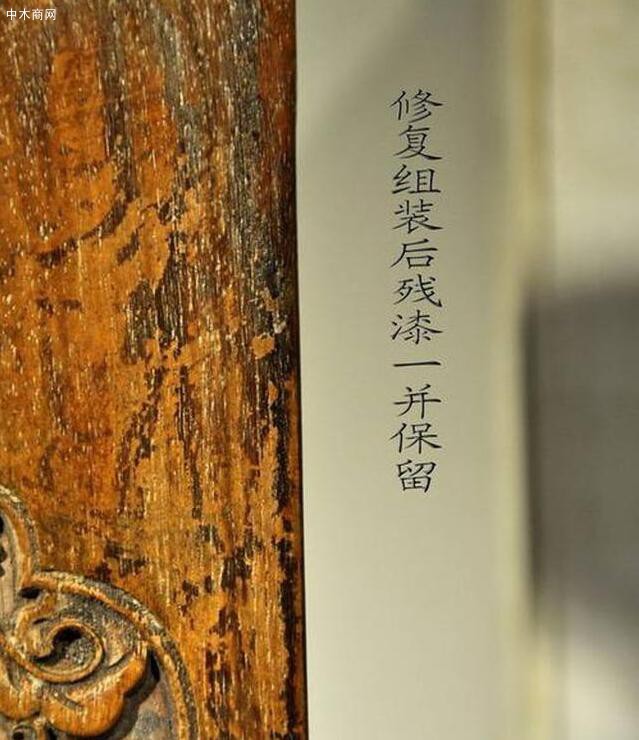 中木商网
修复组装后残漆一并保留